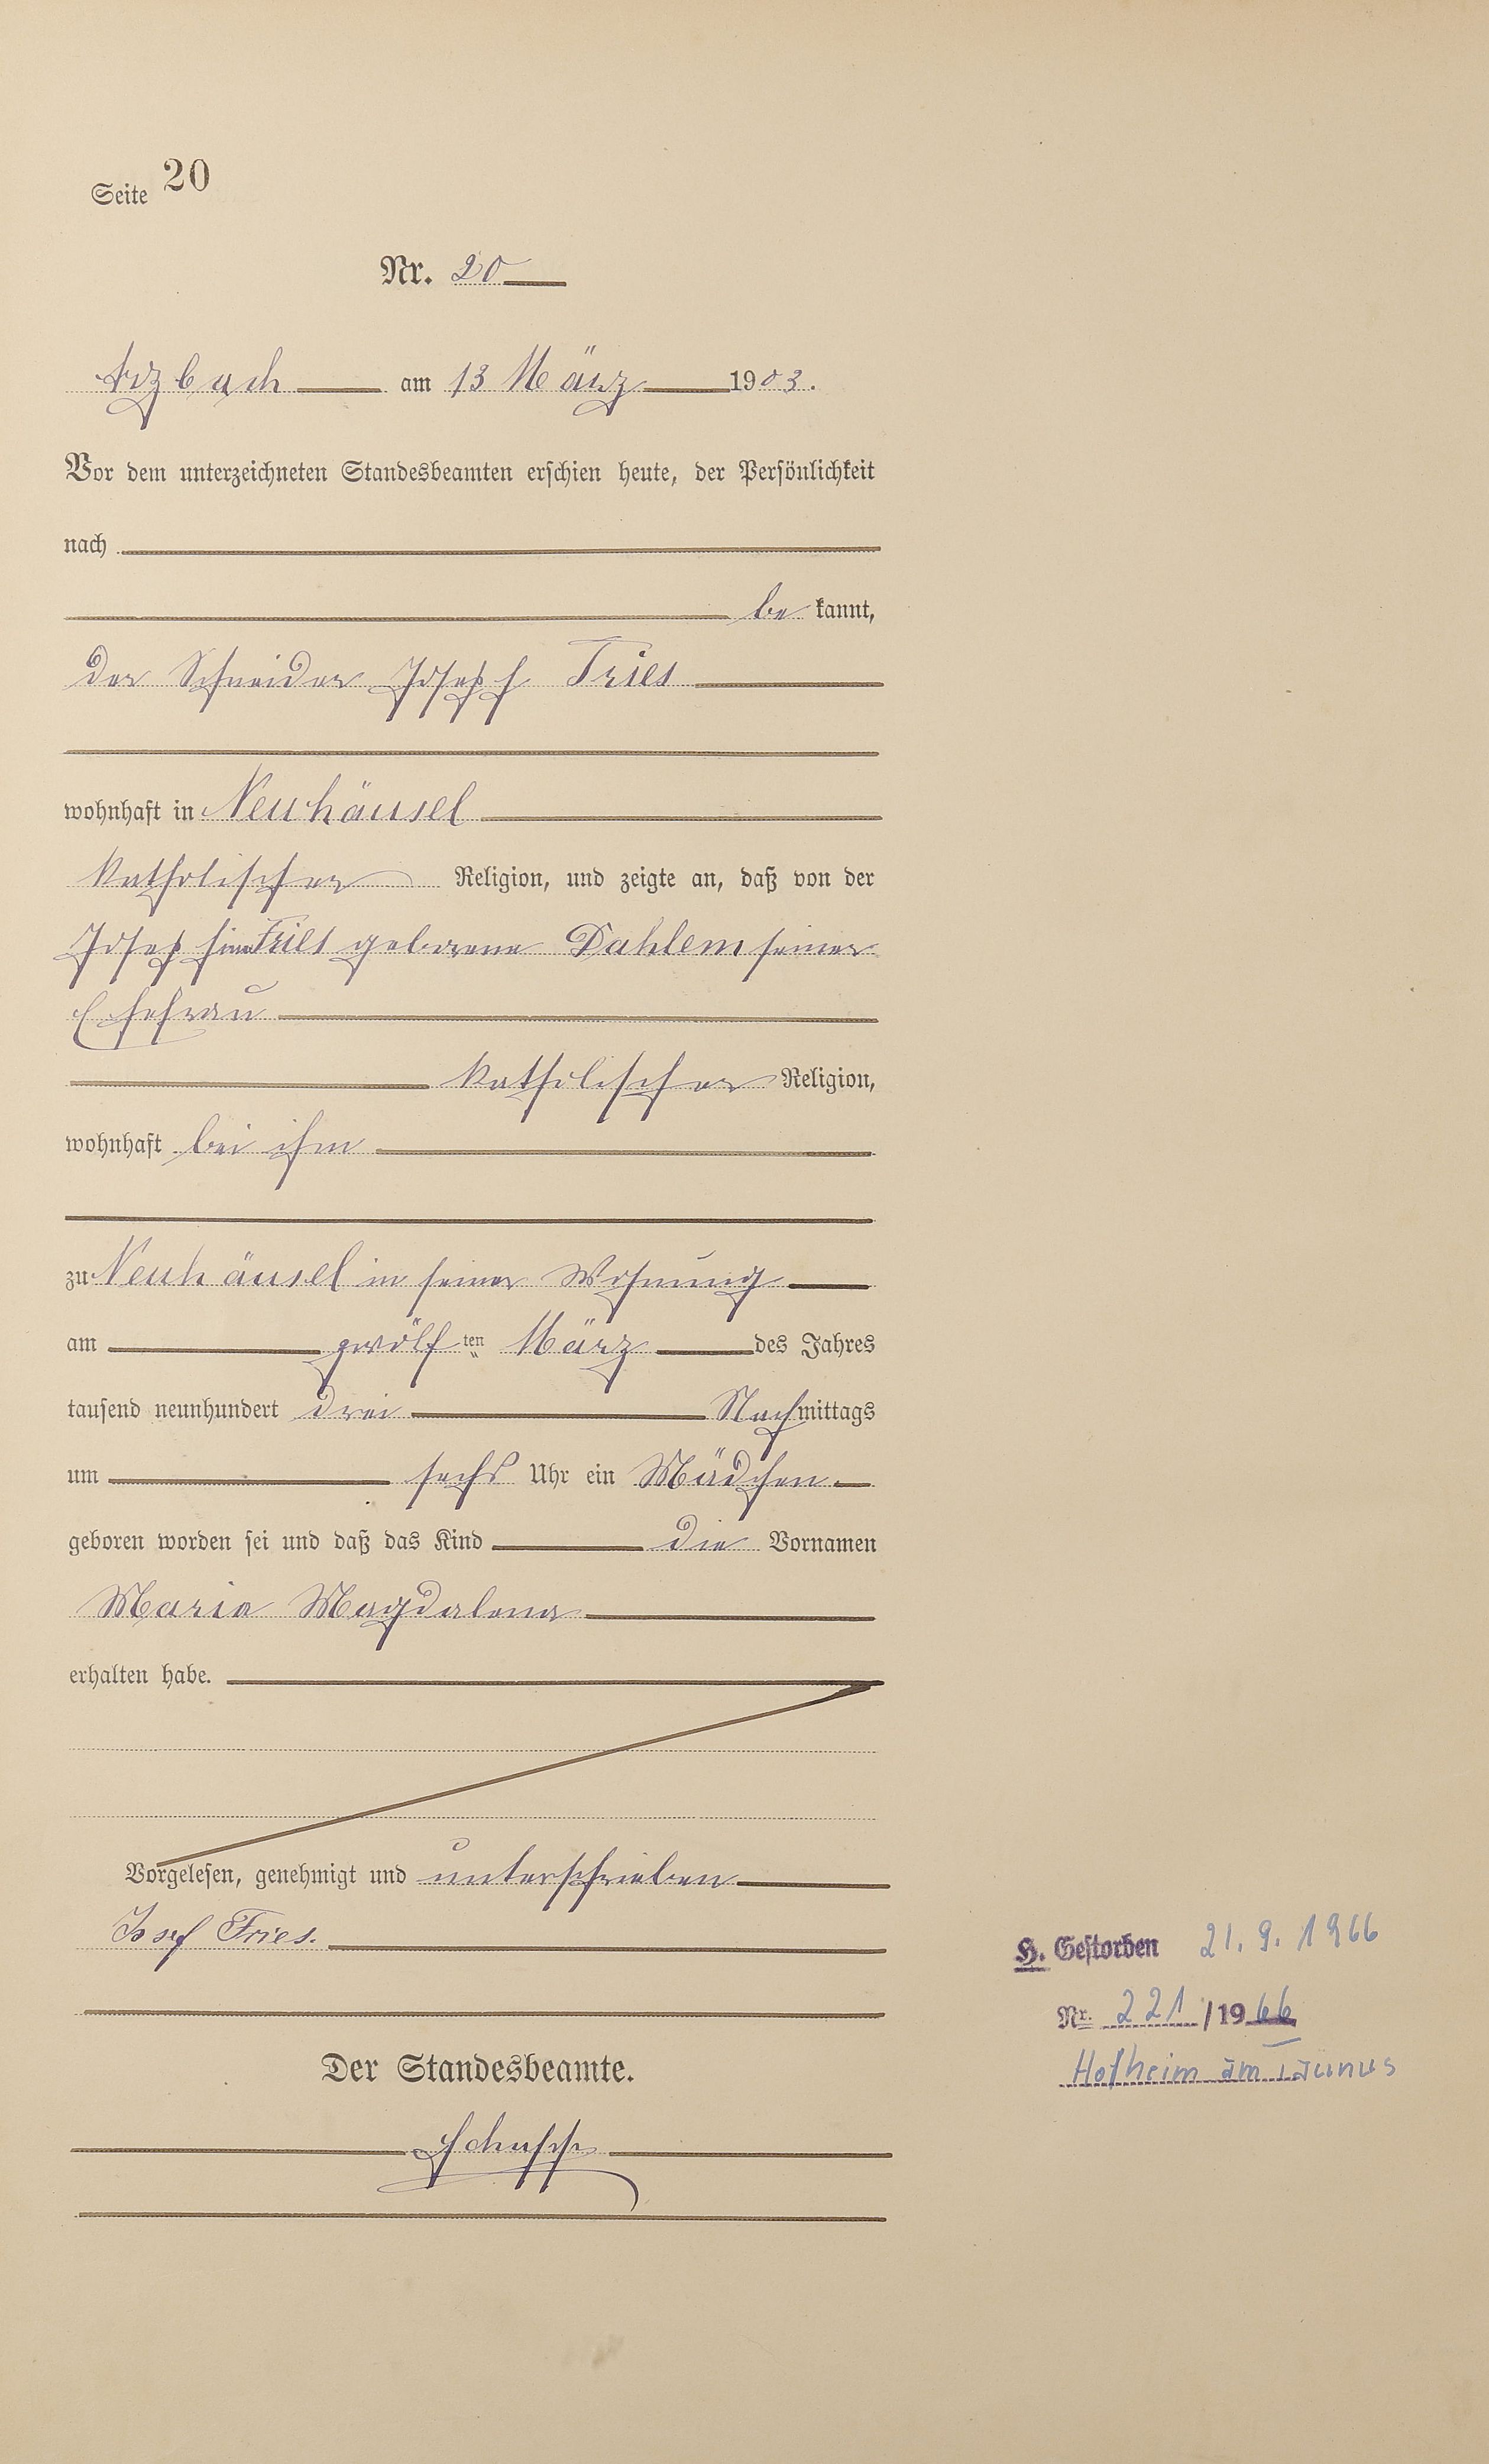 Seite 20
Nr. 20
Arzbach am 13 März 1903.
Vor dem unterzeichneten Standesbeamten erschien heute, der Persönlichkeit
nach
be kannt,
der Schneider Joseph Fries
wohnhaft in Neuhäusel
katholischer Religion, und zeigte an, daß von der
Josephine Fries geborene Dahlem seiner
Ehefrau
katholischer Religion,
wohnhaft bei ihm
zu Neuhäusel in seiner Wohnung
am zwölf ten März des Jahres
tausend neunhundert drei Nachmittags
um sechs Uhr ein Mädchen
geboren worden sei und daß das Kind die Vornamen
Maria Magdalena
erhalten habe.
Vorgelesen, genehmigt und unterschrieben
Josef Fries.
Der Standesbeamte.
H. Gestorben 21. 9. 1966
Nr. 221 /1966
Hofheim am Taunus